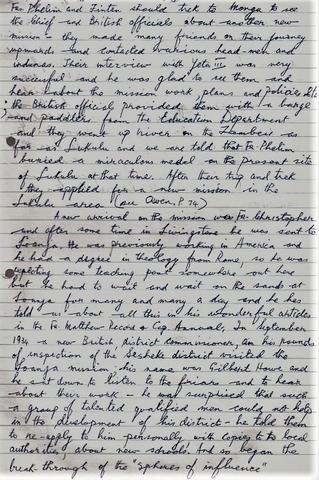 Fr. Phelim and Fintan should trek to Mongu to see
the Chief and British officials about another new
mission - they made many friends on their journey
upwards and contacted various head-men and
indunas. Their interview with Yeta III was very
successful and he was glad to see them and
hear about the mission work, plans and policies &tc
the British official provided them with a barge
and paddlers from the Education Department
and they went up river on the Zambesi as
far as Lukulu and we are told that Fr. Phelim
buried a miraculous medal on the present site
of Lukulu at that time. After their trip and trek
they applied for a new mission in the
Lukulu area (see Owen, P. 74)
A new arrival on the mission was Fr. Christopher
and after some time in Livingstone he was sent to
Loanja. He was previously working in America and
he had a degree in theology from Rome, so he was
expecting some teaching post somewhere out here
but he had to wait and wait on the sands at
Loanja for many and many a day and he has
told us about all this in his wonderful articles
in the Fr. Matthew Record & Cap. Annuals. In September
1934 a new British district commissioner, on his rounds
of inspection of the Sesheke district visited the
Loanja mission, his name was Gilbert Howe and
he sat down to listen to the friars and to hear
about their work - he was surprised that such
a group of talented qualified men could not help
in the development of his district - he told them
to re-apply to him personally with copies to to local
authorities, about new schools. And so began the
break-through of the "spheres of influence"